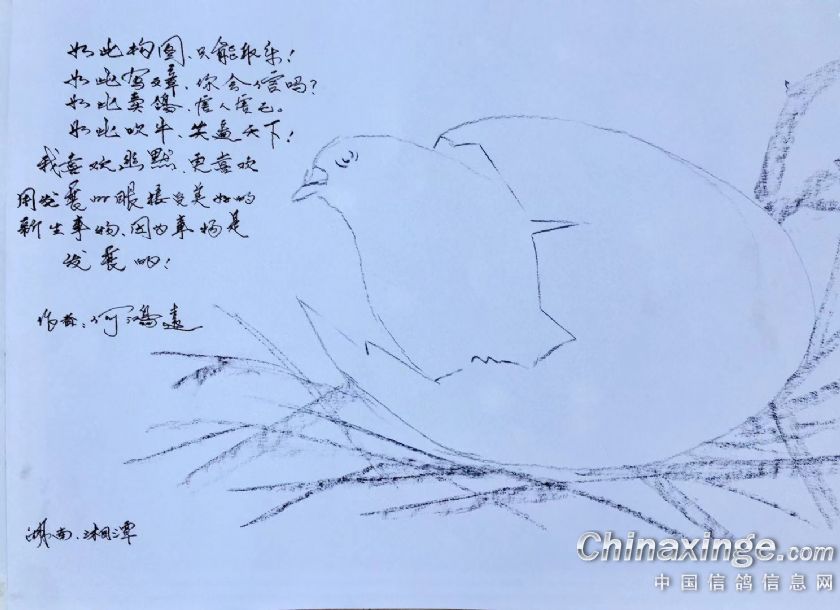 如此构图、只能取乐!
如此写文章、你会信吗?
如此卖鸽、害人害己。
如此吹牛、笑逼天下!
我喜欢幽默、更喜欢
用发展的眼接受美好的
新生事物、因为事物是
发展的!
作者:何鸿远
湖南、湘潭
Chinaxinge.com
中国信鸽信息网